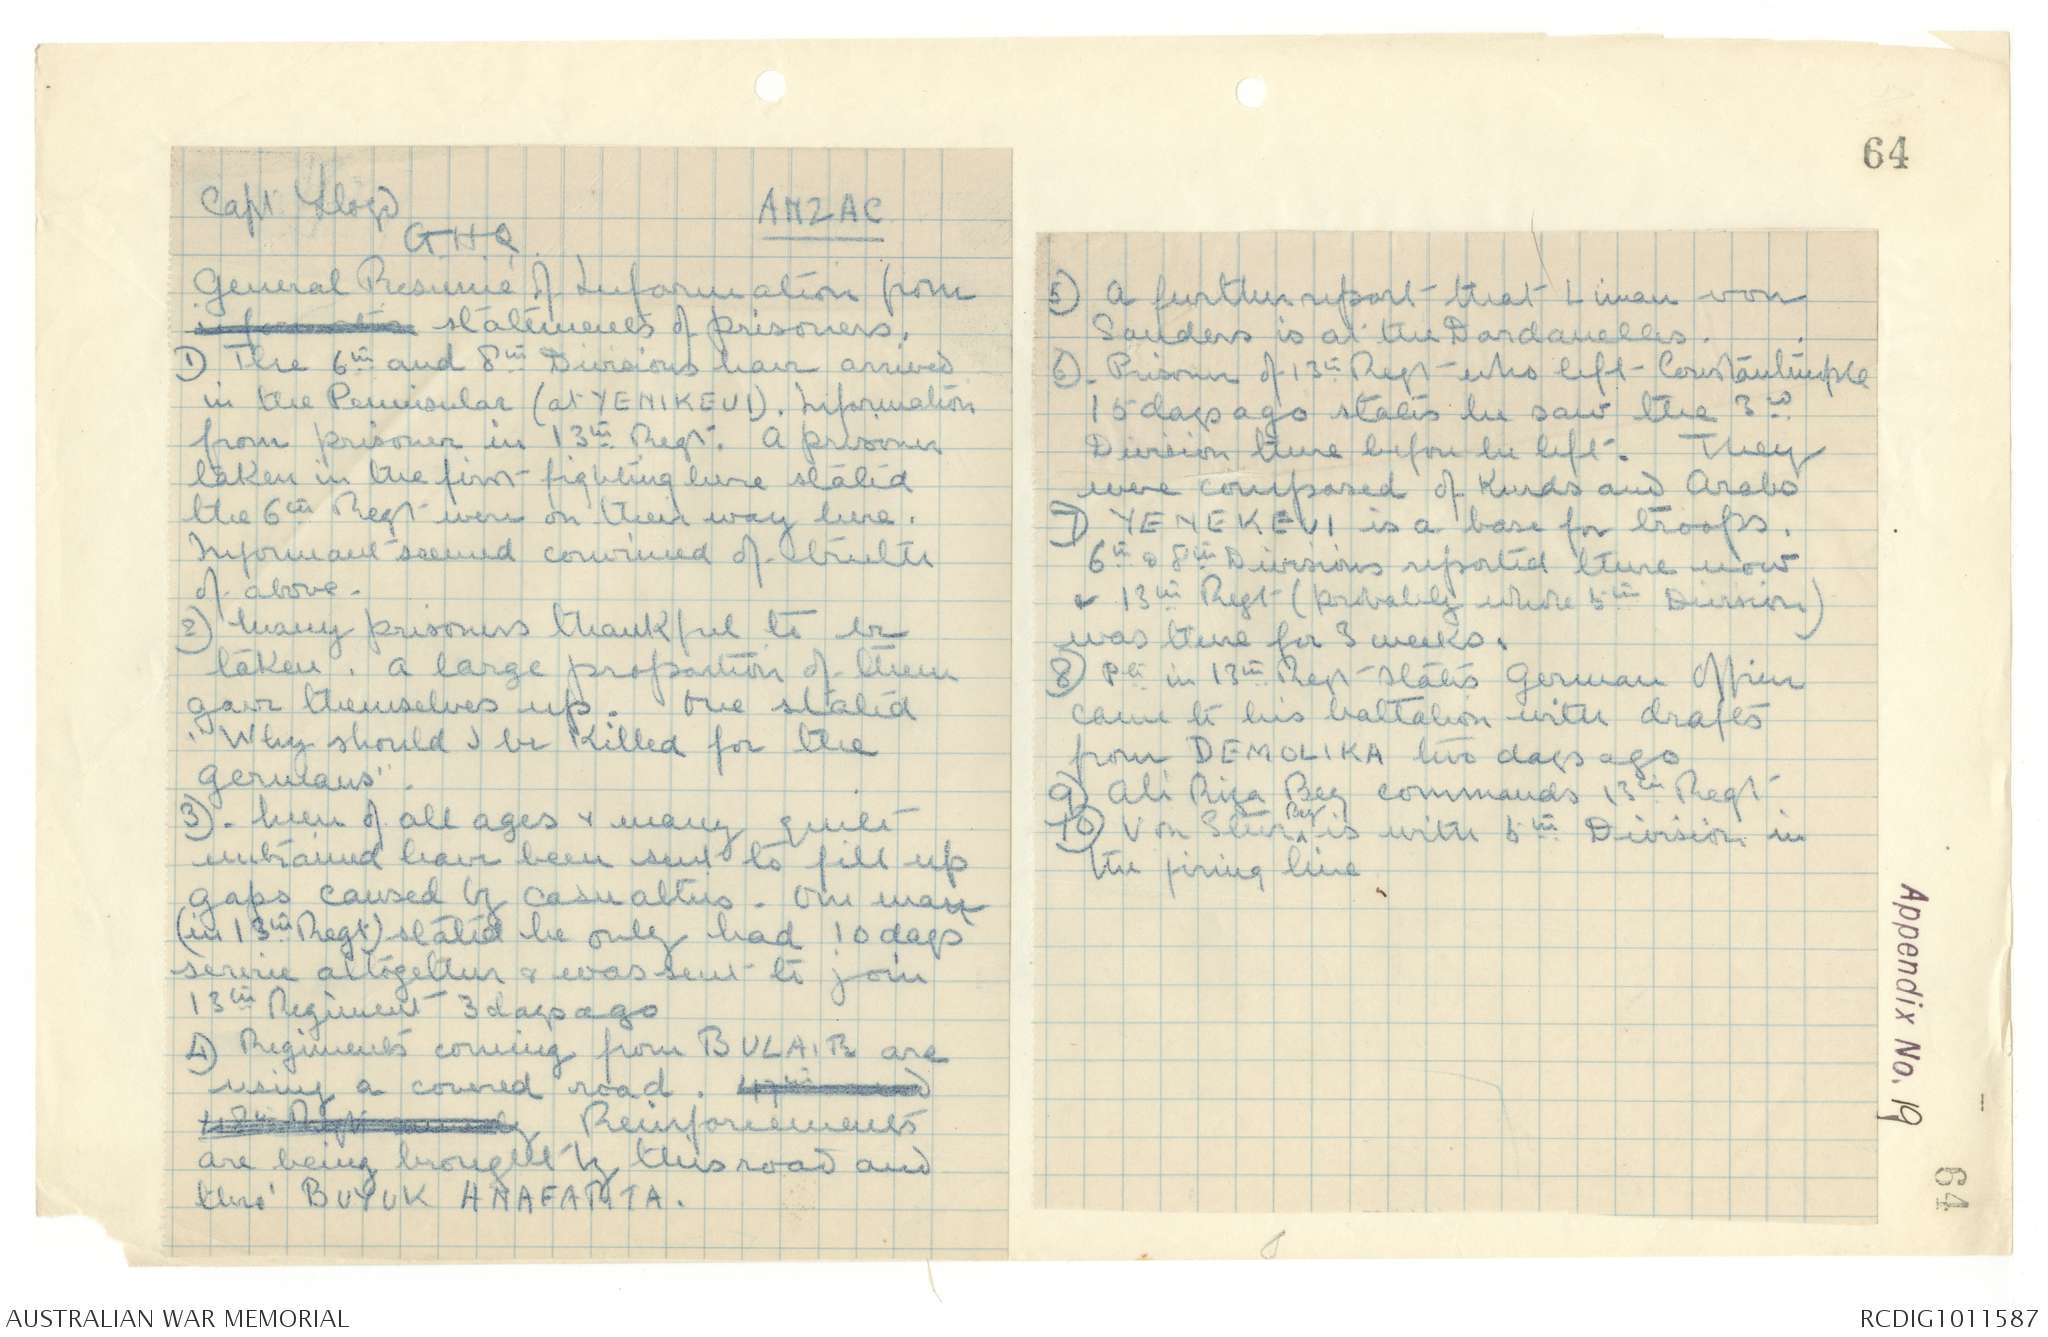 64
Capt. Lloyd ANZAC
GHQ.
General Resumé of Information from
information statements of prisoners.
1) The 6th and 8th Divisions have arrived
in the Peninsular (at YENIKEUI). Information
from prisoner in 13th Regt. A prisoner
taken in the first fighting here stated
the 6th Regt were on their way here.
Informant seemed convinced of truth
of above.
2) Many prisoners thankful to be
taken. A large proportion of them
gave themselves up. One stated
"Why should I be killed for the
Germans".
3). Men of all ages & many quite
untrained have been sent to fill up
gaps caused by casualties. One man
(in 13th Regt) stated he only had 10 days
service altogether & was sent to join
13th Regiment 3 days ago
4) Regiments coming from BULAIR are
using a covered road. 47th and
48th Regt Reinforcements
are being brought by this road and
thro' BUYUK ANAFARTA.
5) A further report that Liman von
Sanders is at the Dardanelles.
6). Prisoner of 13th Regt who left Constantinople
15 days ago states he saw the 3rd
Division there before he left. They
were composed of Kurds and Arabs
7) YENEKEUI is a base for troops.
6th & 8th Divisions reported there now
& 13th Regt (probably whole 5th Division)
was there for 3 weeks.
8) Pte in 13th Regt states German Officer
came to his battalion with drafts
from DEMOLIKA two days ago
9) Ali Riza Bey commands 13th Regt
10) Von Bey is with 5th Division in
the firing line
Appendix No. 19
64
AUSTRALIAN WAR MEMORIAL RCDIG1011587